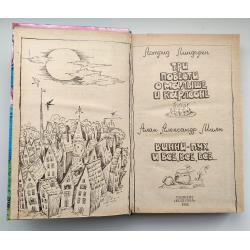 Астрид Линдгрен
ТРИ
ПОВЕСТИ
О МАЛЫШЕ
И КАРЛСОНЕ
Алан Александр Милн
ВИННИ-ПУХ
И ВСЕ, ВСЕ, ВСЕ...